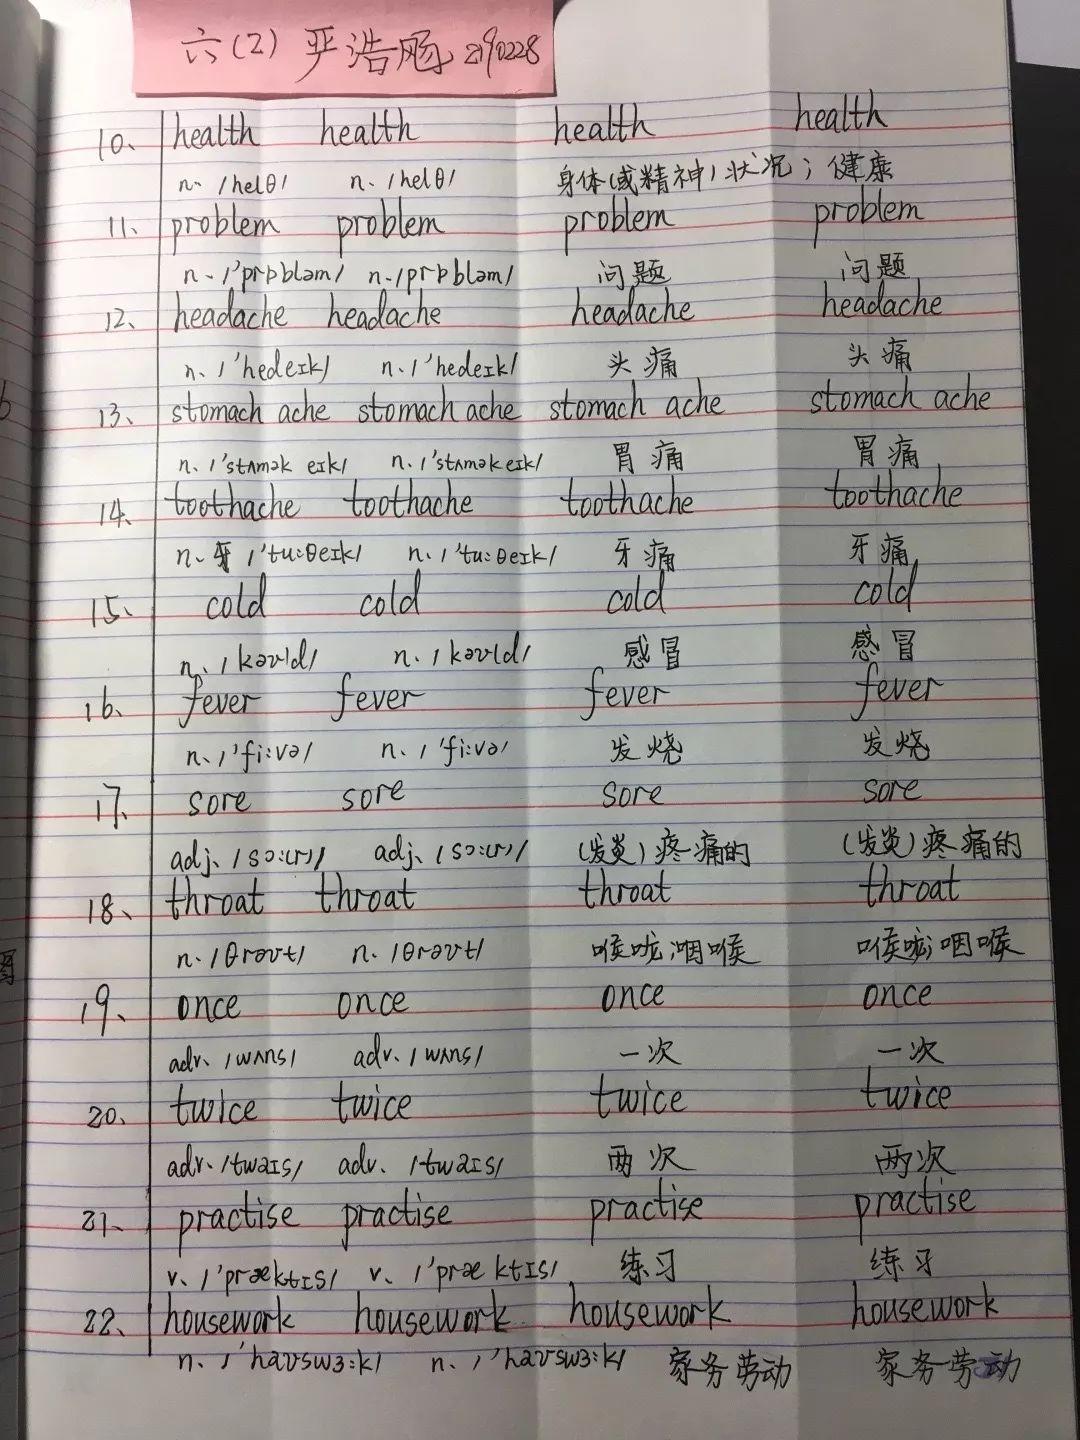 六(2) 严浩旸 290228
10、 health health health health
n. /helθ/ n. /helθ/ 身体(或精神)状况；健康
11、 problem problem problem problem
n. /'prɒbləm/ n. /prɒbləm/ 问题 问题
12、 headache headache headache headache
n. /'hedeɪk/ n. /'hedeɪk/ 头痛 头痛
13、 stomach ache stomach ache stomach ache stomach ache
n. /'stʌmək eɪk/ n. /'stʌmək eɪk/ 胃痛 胃痛
14、 toothache toothache toothache toothache
n. 牙 /'tu:θeɪk/ n. /'tu:θeɪk/ 牙痛 牙痛
15、 cold cold cold cold
n. /kəʊld/ n. /kəʊld/ 感冒 感冒
16、 fever fever fever fever
n. /'fi:və/ n. /'fi:və/ 发烧 发烧
17、 sore sore sore sore
adj. /sɔ:(r)/ adj. /sɔ:(r)/ (发炎)疼痛的 (发炎)疼痛的
18、 throat throat throat throat
n. /θrəʊt/ n. /θrəʊt/ 喉咙;咽喉 喉咙;咽喉
19、 once once once once
adv. /wʌns/ adv. /wʌns/ 一次 一次
20、 twice twice twice twice
adv. /twaɪs/ adv. /twaɪs/ 两次 两次
21、 practise practise practise practise
v. /'præktɪs/ v. /'præktɪs/ 练习 练习
22、 housework housework housework housework
n. /'haʊswɜ:k/ n. /'haʊswɜ:k/ 家务劳动 家务劳动